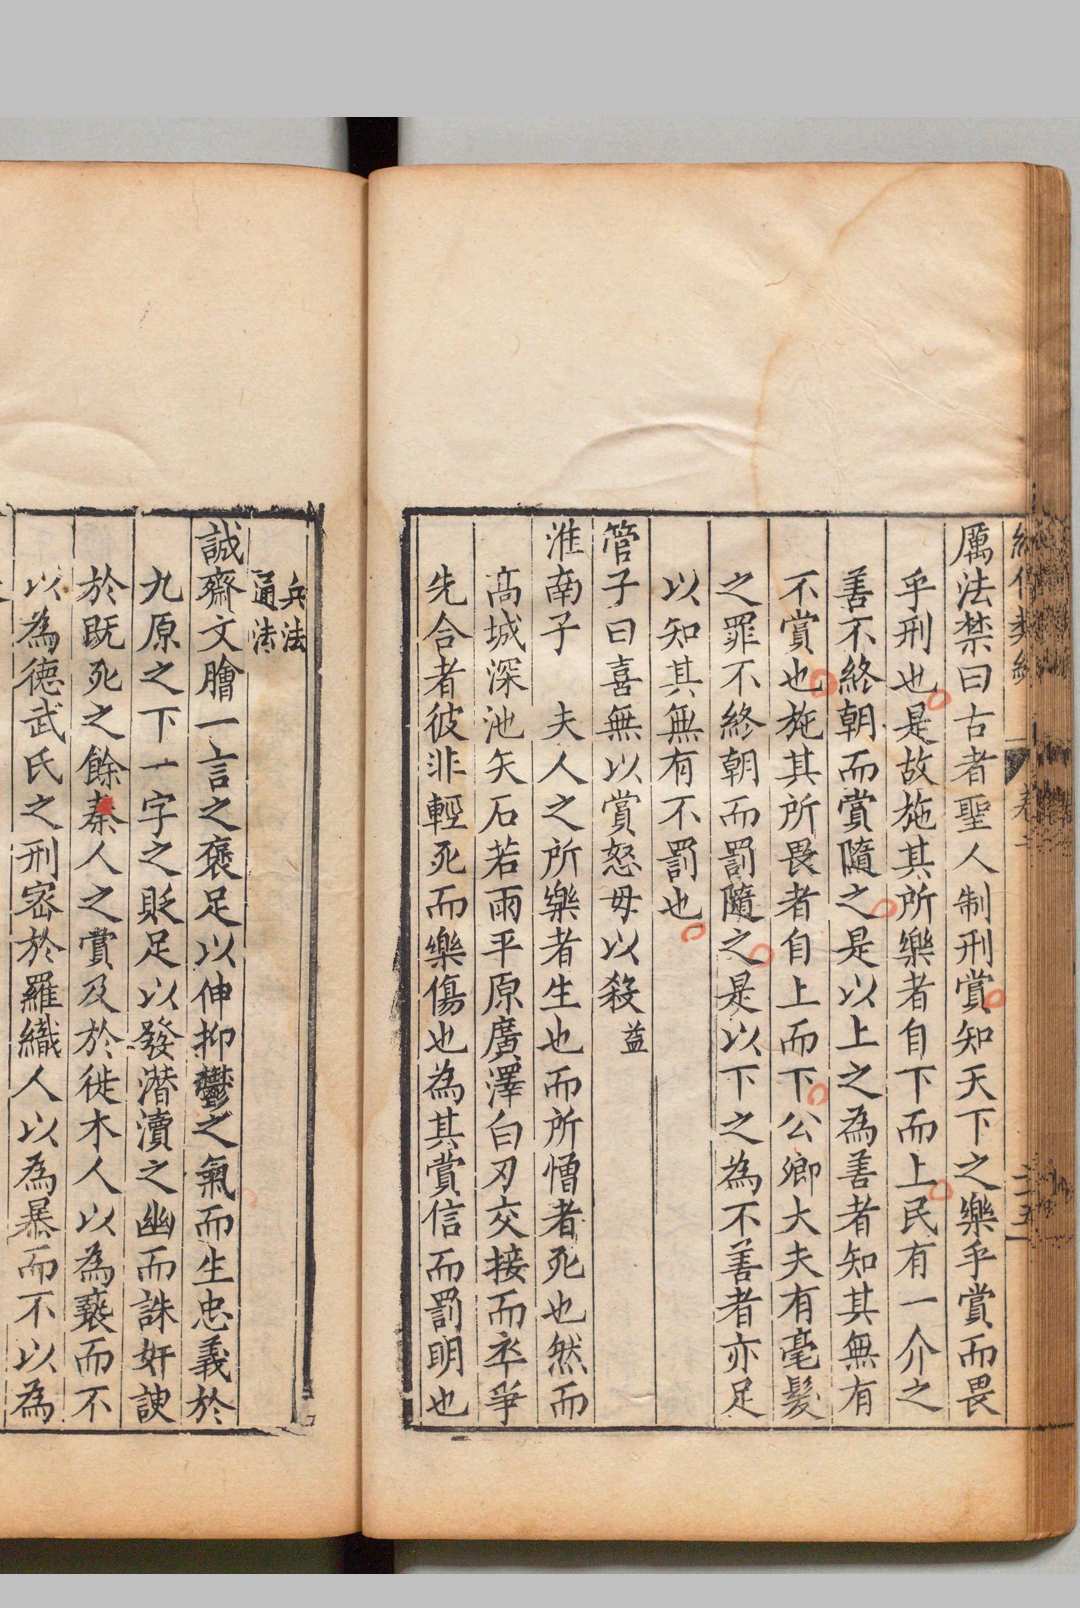 厲法禁曰古者聖人制刑賞知天下之樂乎賞而畏
乎刑也是故施其所樂者自下而上民有一介之
善不終朝而賞隨之是以上之為善者知其無有
不賞也施其所畏者自上而下公卿大夫有毫髮
之罪不終朝而罰隨之是以下之為不善者亦足
以知其無有不罰也
管子曰喜無以賞怒毋以殺 益
淮南子 夫人之所樂者生也而所憎者死也然而
高城深池矢石若雨平原廣澤白刃交接而卒爭
先合者彼非輕死而樂傷也為其賞信而罰明也
兵法
通法
誠齋文膾一言之褒足以伸抑鬱之氣而生忠義於
九原之下一字之貶足以發潛瀆之幽而誅奸諛
於既死之餘秦人之賞及於徙木人以為褻而不
以為德武氏之刑密於羅織人以為暴而不以為